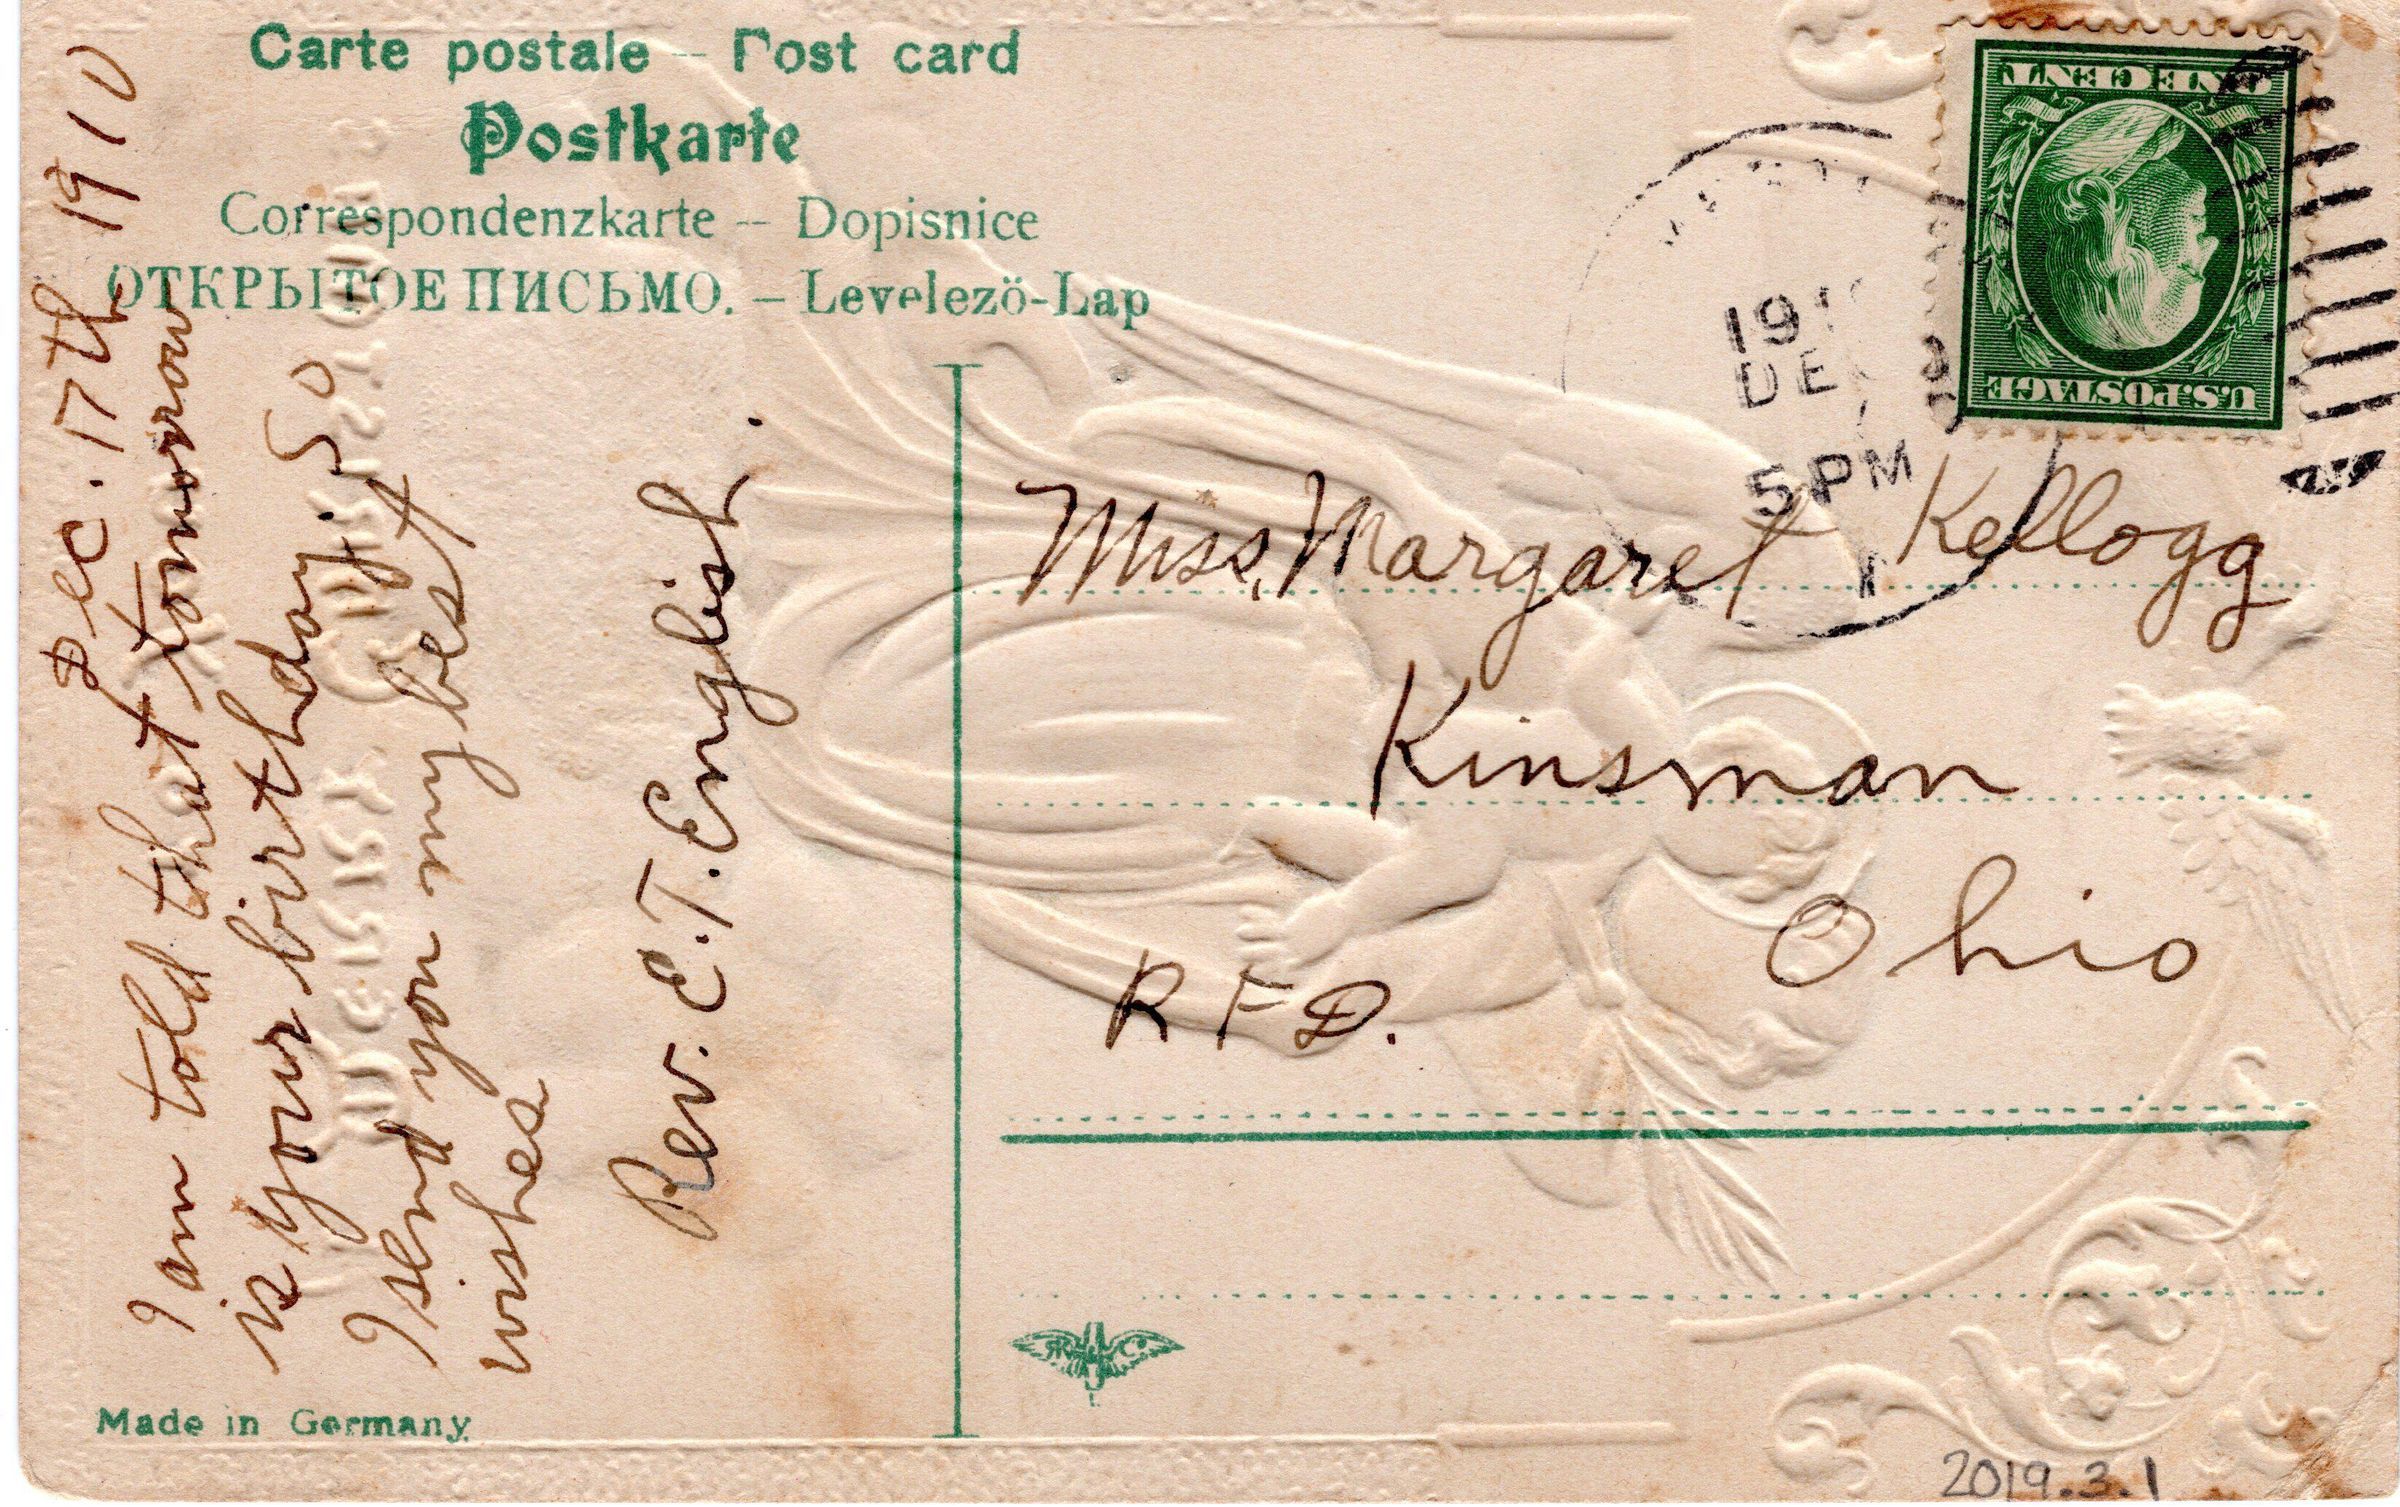 Carte postale – Post card
Postkarte
Correspondenzkarte – Dopisnice
ОТКРЫТОЕ ПИСЬМО. – Levelezö-Lap
Dec. 17th 1910
I am told that tomorrow
is your birthday. So
I send you my best
wishes
Rev. E. T. English.
Made in Germany.
ONE CENT
U.S. POSTAGE
191
DE
5 PM
Miss. Margaret Kellogg
Kinsman
Ohio
R F D.
2019.3.1